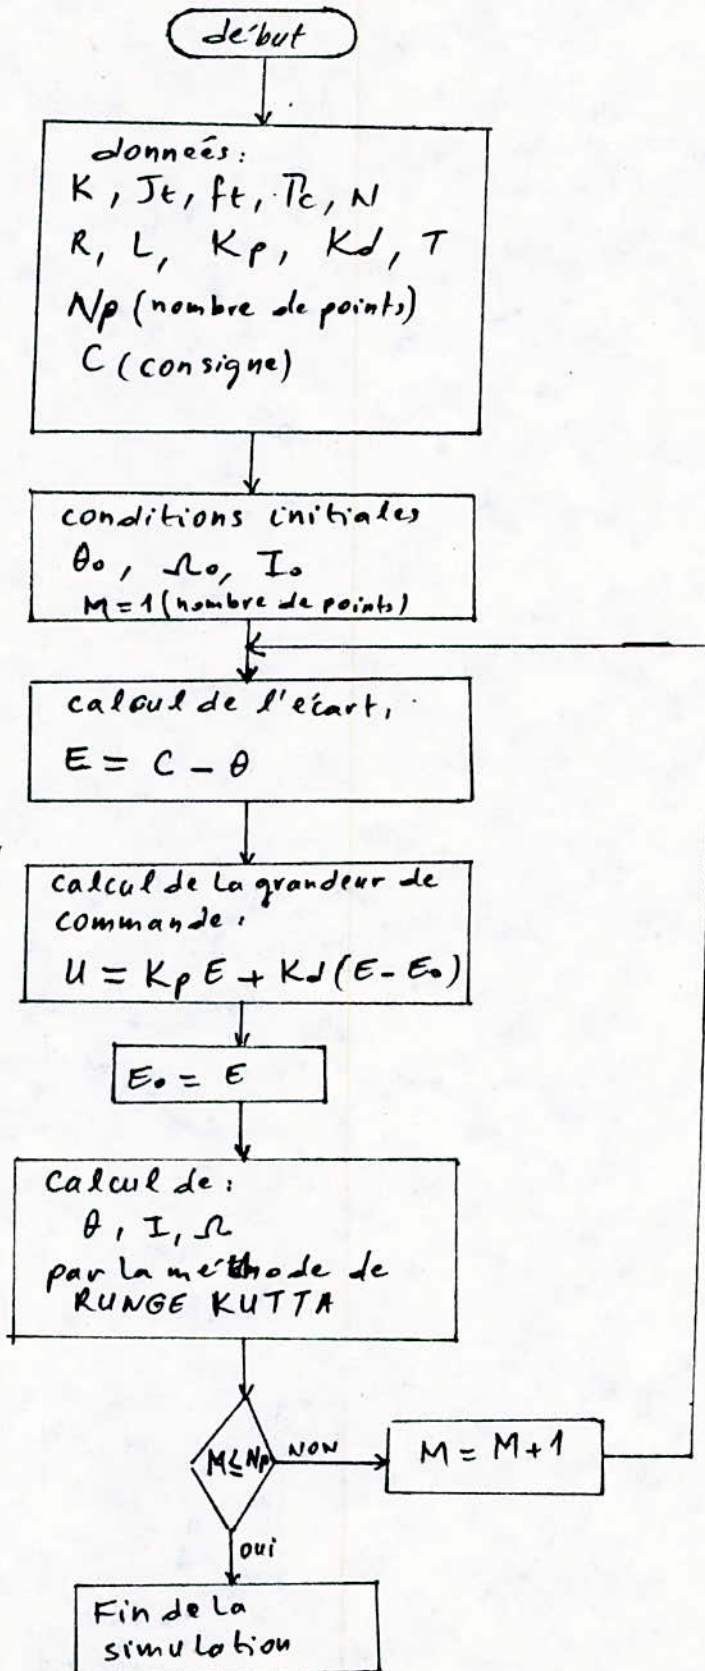 début
données:
K, Jt, ft, Γc, N
R, L, Kp, Kd, T
Np (nombre de points)
C (consigne)
conditions initiales
θ₀, Ω₀, I₀
M = 1 (nombre de points)
calcul de l'écart,
E = C - θ
calcul de la grandeur de
commande:
U = Kp E + Kd (E - E₀)
E₀ = E
calcul de:
θ, I, Ω
par la méthode de
RUNGE KUTTA
M ≤ Np
NON
M = M + 1
oui
Fin de la
simulation